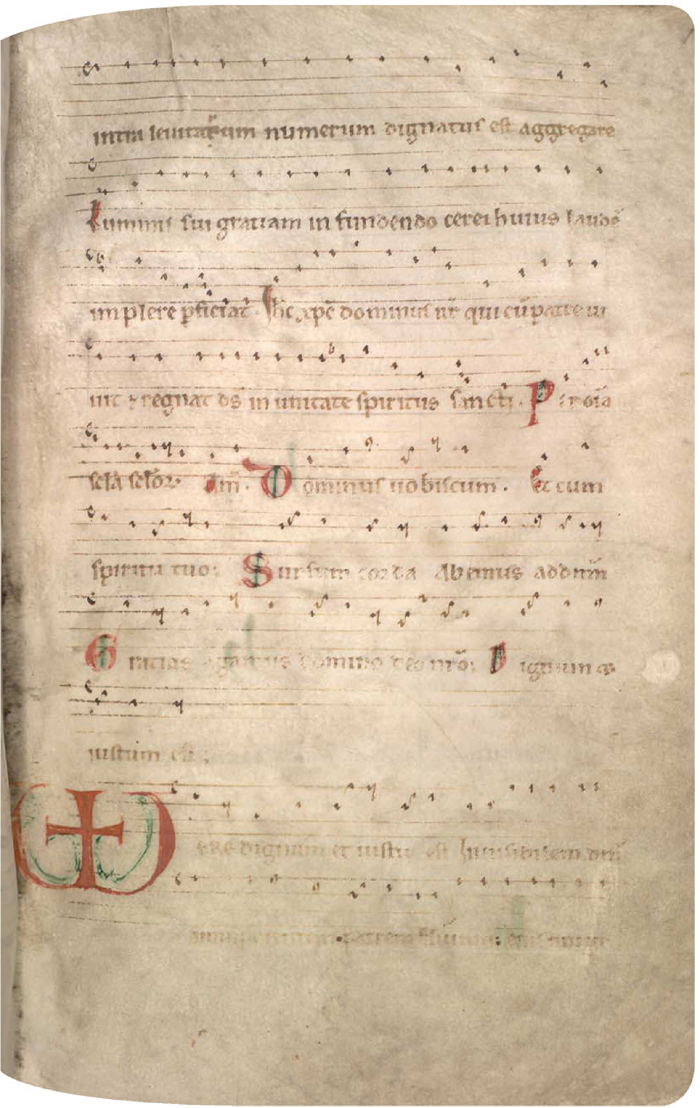 intra leuitarum numerum dignatus est aggregare
Luminis sui gratiam in fundendo cerei huius laudē
implere pficiat. Ihc xpc dominus nr̄ qui cū patre ui
uit ⁊ regnat ds̄ in unitate spiritus sancti. Per oīa
sc̄la sc̄lōꝝ. Am̄. Dominus uobiscum. Et cum
spiritu tuo. Sursum corda Abemus addn̄m
Gracias agamus domino deo nr̄o. Dignum &
iustum est.
Vere dignum et iustū est
patrem